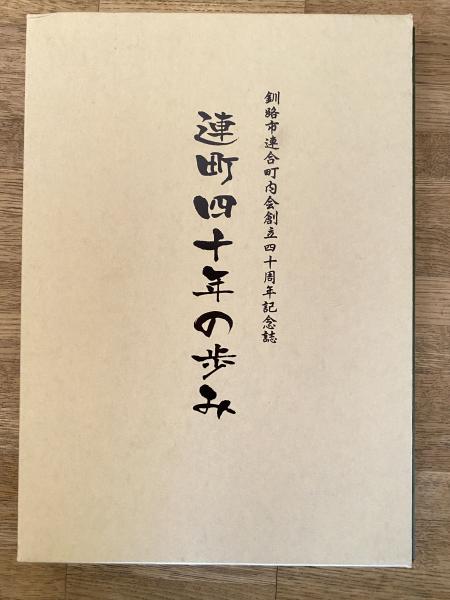 釧路市連合町内会創立四十周年記念誌
連町四十年の歩み